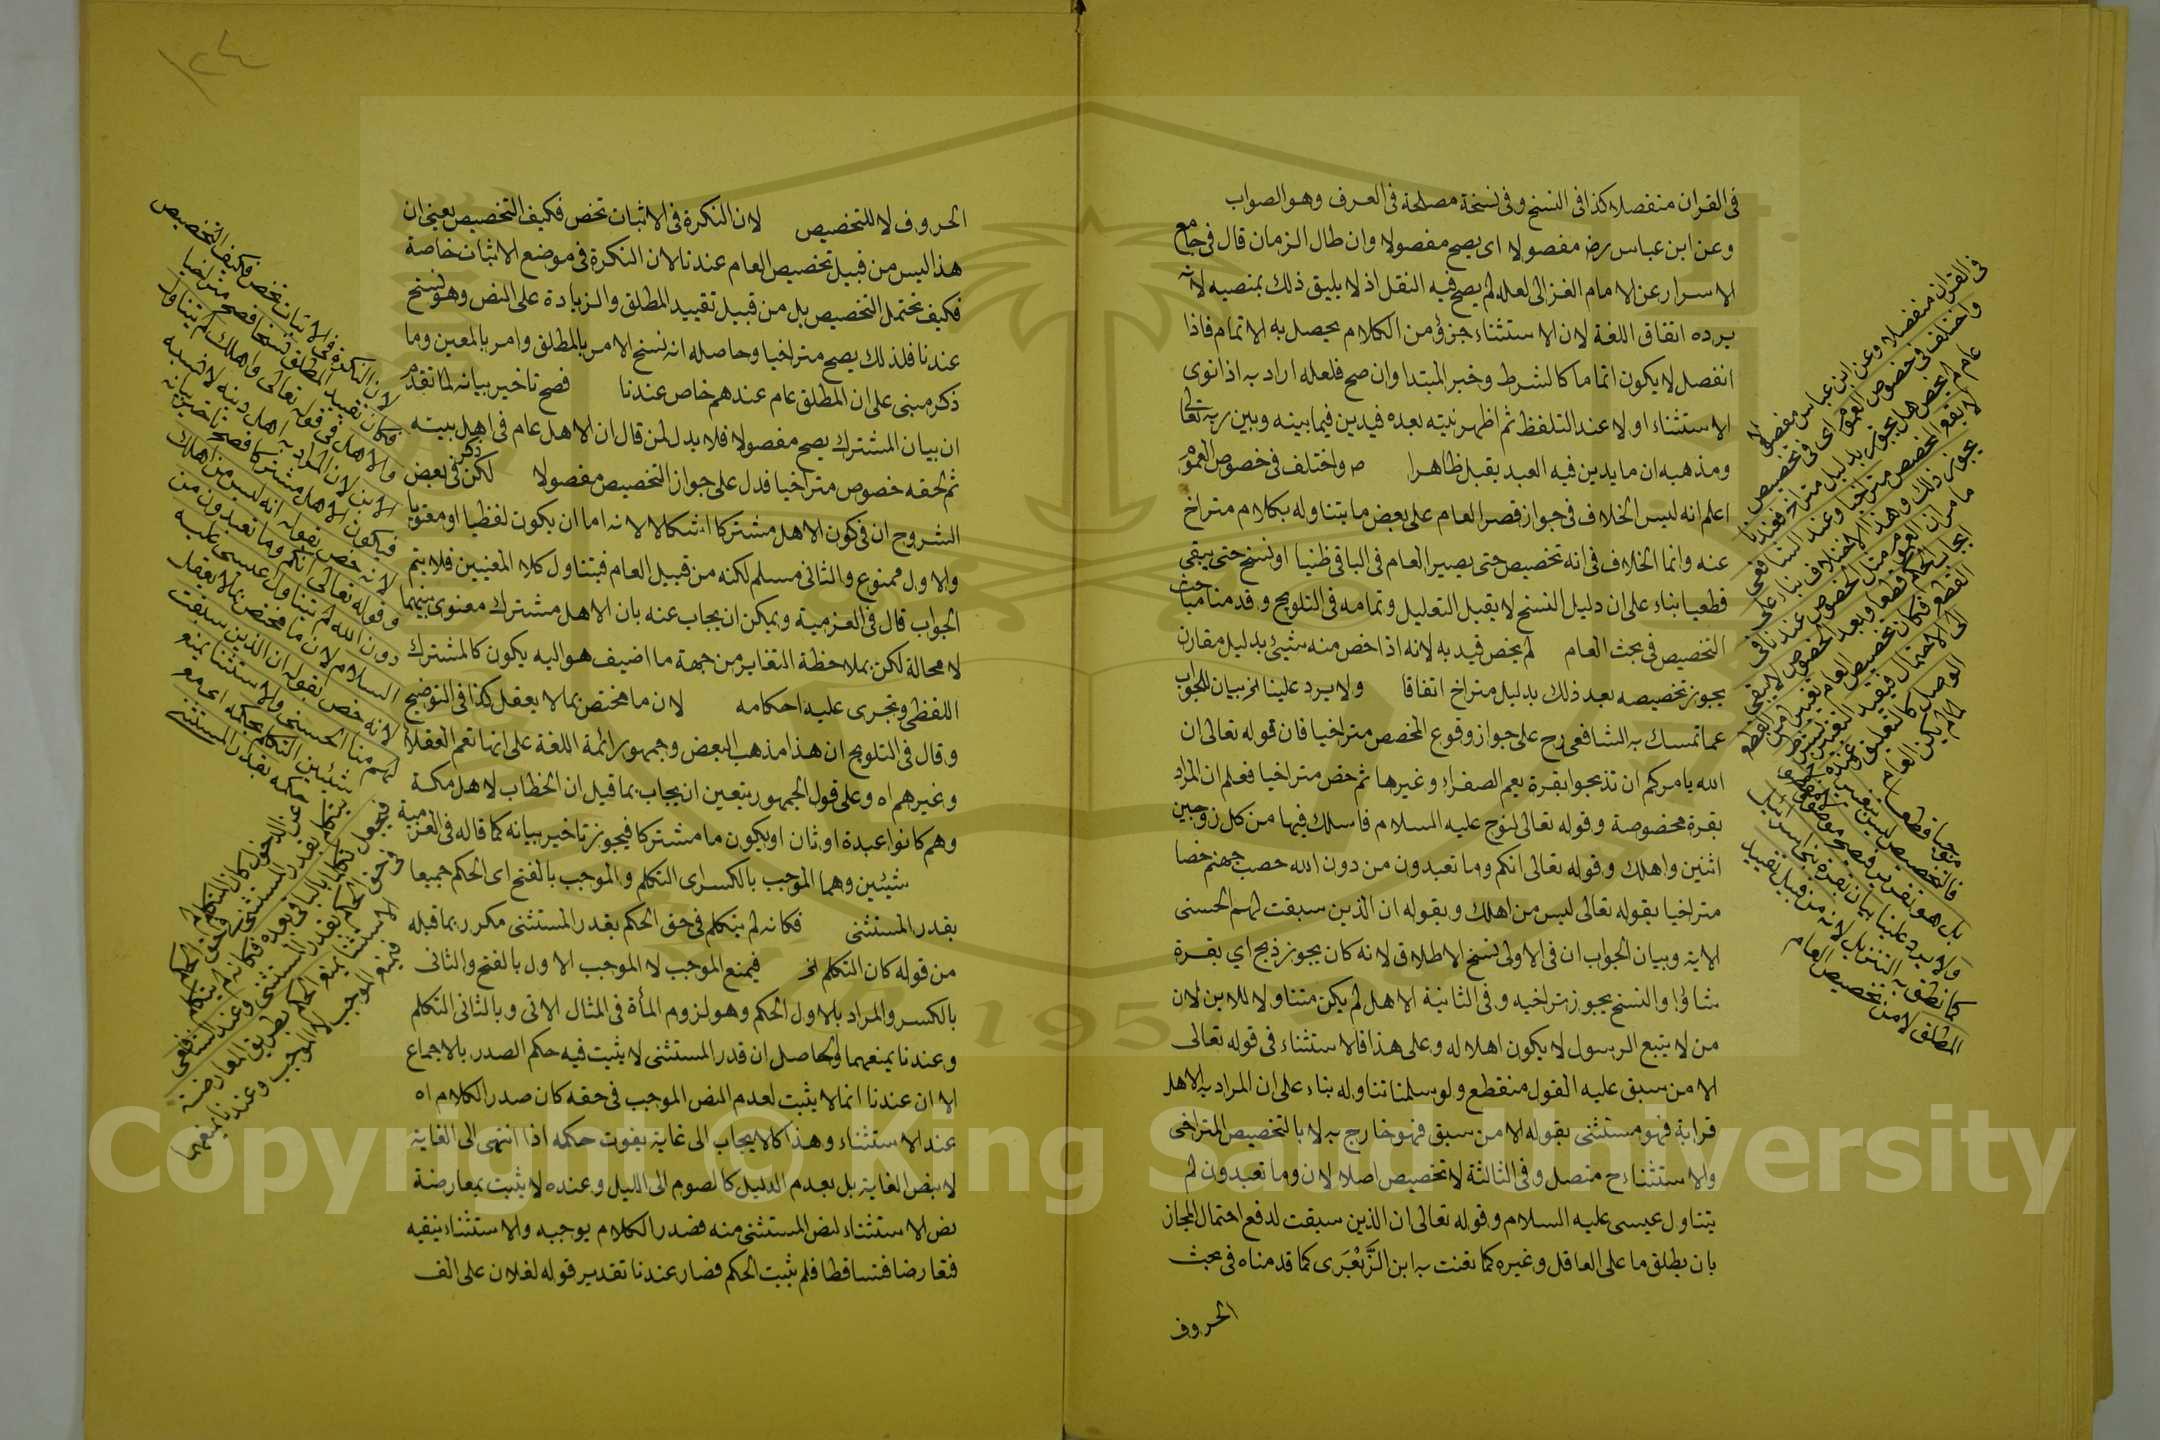 في القران منفصلا كذا في النسخ وفي نسخة مصلحة في العرف وهو الصواب
وعن ابن عباس رض مفصولا اى يصح مفصولا وان طال الزمان قال في جامع
الاسرار عن الامام الغزالى لعله لم يصح فيه النقل اذ لا يليق ذلك بمنصبه لانه
يرده اتفاق اللغة لان الاستثناء جزؤ من الكلام يحصل به الاتمام فاذا
انفصل لا يكون اتماما كالشرط وخبر المبتدا وان صح فلعله اراد به اذا نوى
الاستثناء اولا عند التلفظ ثم اظهر نيته بعده فيدين فيما بينه وبين ربه تعالى
ومذهبه ان ما يدين فيه العبد يقبل ظاهرا ص واختلف في خصوص العموم
اعلم انه ليس الخلاف في جواز قصر العام على بعض ما يتناوله بكلام متراخ
عنه وانما الخلاف في انه تخصيص حتى يصير العام في الباقى ظنيا او نسخ حتى يبقى
قطعيا بناء على ان دليل النسخ لا يقبل التعليل وتمامه في التلويح وقدمنا مباحث
التخصيص في بحث العام لم يخص قيد به لانه اذا خص منه شيئ بدليل مقارن
يجوز تخصيصه بعد ذلك بدليل متراخ اتفاقا ولا يرد علينا الخ بيان للجواب
عما تمسك به الشافعى رح على جواز وقوع المخصص متراخيا فان قوله تعالى ان
الله يامركم ان تذبحوا بقرة يعم الصفراء وغيرها ثم خص متراخيا فعلم ان المراد
بقرة مخصوصة وقوله تعالى لنوح عليه السلام فاسلك فيها من كل زوجين
اثنين واهلك وقوله تعالى انكم وما تعبدون من دون الله حصب جهنم خصا
متراخيا بقوله تعالى ليس من اهلك وبقوله ان الذين سبقت لهم الحسنى
الاية وبيان الجواب ان في الاولى نسخ الاطلاق لانه كان يجوز ذبح اي بقرة
شاؤا والنسخ يجوز بتراخيه وفي الثانية الاهل لم يكن متناولا للابن لان
من لا يتبع الرسول لا يكون اهلا له وعلى هذا فالاستثناء في قوله تعالى
الا من سبق عليه القول منقطع ولو سلمنا تناوله بناء على ان المراد به الاهل
قرابة فهو مستثنى بقوله الا من سبق فهو خارج به لا بالتخصيص المتراخى
والاستثناء ح متصل وفي الثالثة لا تخصيص اصلا لان وما تعبدون لم
يتناول عيسى عليه السلام وقوله تعالى ان الذين سبقت لدفع احتمال المجاز
بان يطلق ما على العاقل وغيره كما تعنت به ابن الزَّبَعْرَى كما قدمناه في بحث
الحروف
في القران منفصلا وعن ابن عباس مفصولا
واختلف في خصوص العموم اى في تخصيص
عام لم يخص هل يجوز بدليل متراخ فعندنا
لا يقع المخصص متراخيا وعند الشافعى
يجوز ذلك وهذا الاختلاف بناء على
ما مر ان العموم مثل الخصوص عندنا في
ايجاب الحكم قطعا وبعد الخصوص لا يبقى
القطع فكان تخصيص العام تغييرا من القطع
الى الاحتمال فيقيد التغيير بشرط
الوصل كالتعليق وعنده
لما لم يكن العام
موجبا قطعا
فالتخصيص ليس بتغيير
بل هو تقرير فيصح موصولا
ولا يرد علينا بيان بقرة بنى اسرائيل
كما نطق به التنزيل لانه من قبيل تقييد
المطلق لا من تخصيص العام
١٢٤
الحروف لا للتخصيص لان النكرة في الاثبات تخص فكيف التخصيص يعنى ان
هذا ليس من قبيل تخصيص العام عندنا لان النكرة في موضع الاثبات خاصة
فكيف يحتمل التخصيص بل من قبيل تقييد المطلق والزيادة على النص وهو نسخ
عندنا فلذلك يصح متراخيا وحاصله انه نسخ الامر بالمطلق وامر بالمعين وما
ذكر مبنى على ان المطلق عام عندهم خاص عندنا فصح تاخير بيانه لما تقدم
ان بيان المشترك يصح مفصولا فلا بد لمن قال ان الاهل عام في اهل بيته
ثم لحقه خصوص متراخيا فدل على جواز التخصيص مفصولا لكن ذكر في بعض
الشروح ان في كون الاهل مشتركا اشكالا لانه اما ان يكون لفظيا او معنويا
والاول ممنوع والثانى مسلم لكنه من قبيل العام فيتناول كلا المعنيين فلا يتم
الجواب قال في العزمية ويمكن ان يجاب عنه بان الاهل مشترك معنوى بينهما
لا محالة لكن بملاحظة التغاير من جهة ما اضيف هو اليه يكون كالمشترك
اللفظى وتجرى عليه احكامه لان ما مختص بما لا يعقل كذا في التوضيح
وقال في التلويح ان هذا مذهب البعض وجمهور ائمة اللغة على انها تعم العقلاء
وغيرهم اه وعلى قول الجمهور يتعين ان يجاب بما قيل ان الخطاب لاهل مكة
وهم كانوا عبدة اوثان او يكون ما مشتركا فيجوز تاخير بيانه كما قاله في العزمية
شيئين وهما الموجب بالكسر اى التكلم والموجب بالفتح اى الحكم جميعا
بقدر المستثنى فكانه لم يتكلم في حق الحكم بقدر المستثنى مكرر بما قبله
من قوله كان التكلم الخ فيمنع الموجب لا الموجب الاول بالفتح والثانى
بالكسر والمراد بالاول الحكم وهو لزوم المأة في المثال الاتى وبالثانى التكلم
وعندنا يمنعهما والحاصل ان قدر المستثنى لا يثبت فيه حكم الصدر بالاجماع
الا ان عندنا انما لا يثبت لعدم النص الموجب في حقه كان صدر الكلام اه
عند الاستثناء وهذا كالايجاب الى غاية يفوت حكمه اذا انتهى الى الغاية
لا بنص الغاية بل بعدم الدليل كالصوم الى الليل وعنده لا يثبت بمعارضة
نص الاستثناء لنص المستثنى منه فصدر الكلام يوجبه والاستثناء ينفيه
فتعارضا فتساقطا فلم يثبت الحكم فصار عندنا تقدير قوله لفلان على الف
لان النكرة في الاثبات تخص فكيف التخصيص
فكان تقييد المطلق نسخا فصح متراخيا
والاهل في قوله تعالى واهلك لم يتناول
الابن لان المراد به اهل دينه لا نسبه
فيكون الاهل مشتركا فصح تاخير بيانه
لانه خص بقوله انه ليس من اهلك
وقوله تعالى انكم وما تعبدون من
دون الله لم يتناول عيسى عليه
السلام لان ما مختص بما لا يعقل
لا انه خص بقوله ان الذين سبقت
لهم منا الحسنى والاستثنا يمنع
شيئين التكلم بحكمه اى مع
حكمه بقدر المستثنى
فيجعل تكلما بالباقى بعده فكانه لم يتكلم
في حق الحكم بقدر المستثنى وعند الشافعى
الاستثنا يمنع الحكم بطريق المعارضة
فيمنع الموجب لا الموجب وعندنا يمنعهما